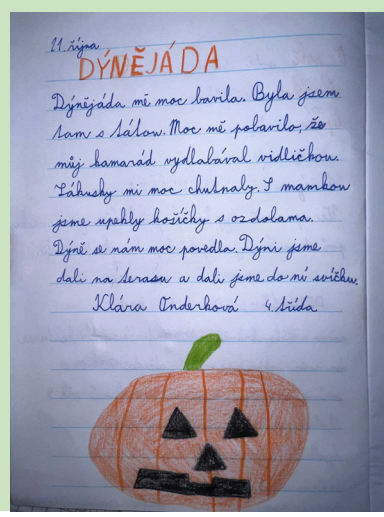 21. října
DÝNĚJÁDA
Dýnějáda mě moc bavila. Byla jsem
tam s tátou. Moc mě pobavilo, že
můj kamarád vydlabával vidličkou.
Zákusky mi moc chutnaly. S mamkou
jsme upekly košíčky s ozdobama.
Dýně se nám moc povedla. Dýni jsme
dali na terasu a dali jsme do ní svíčku.
Klára Onderková 4. třída